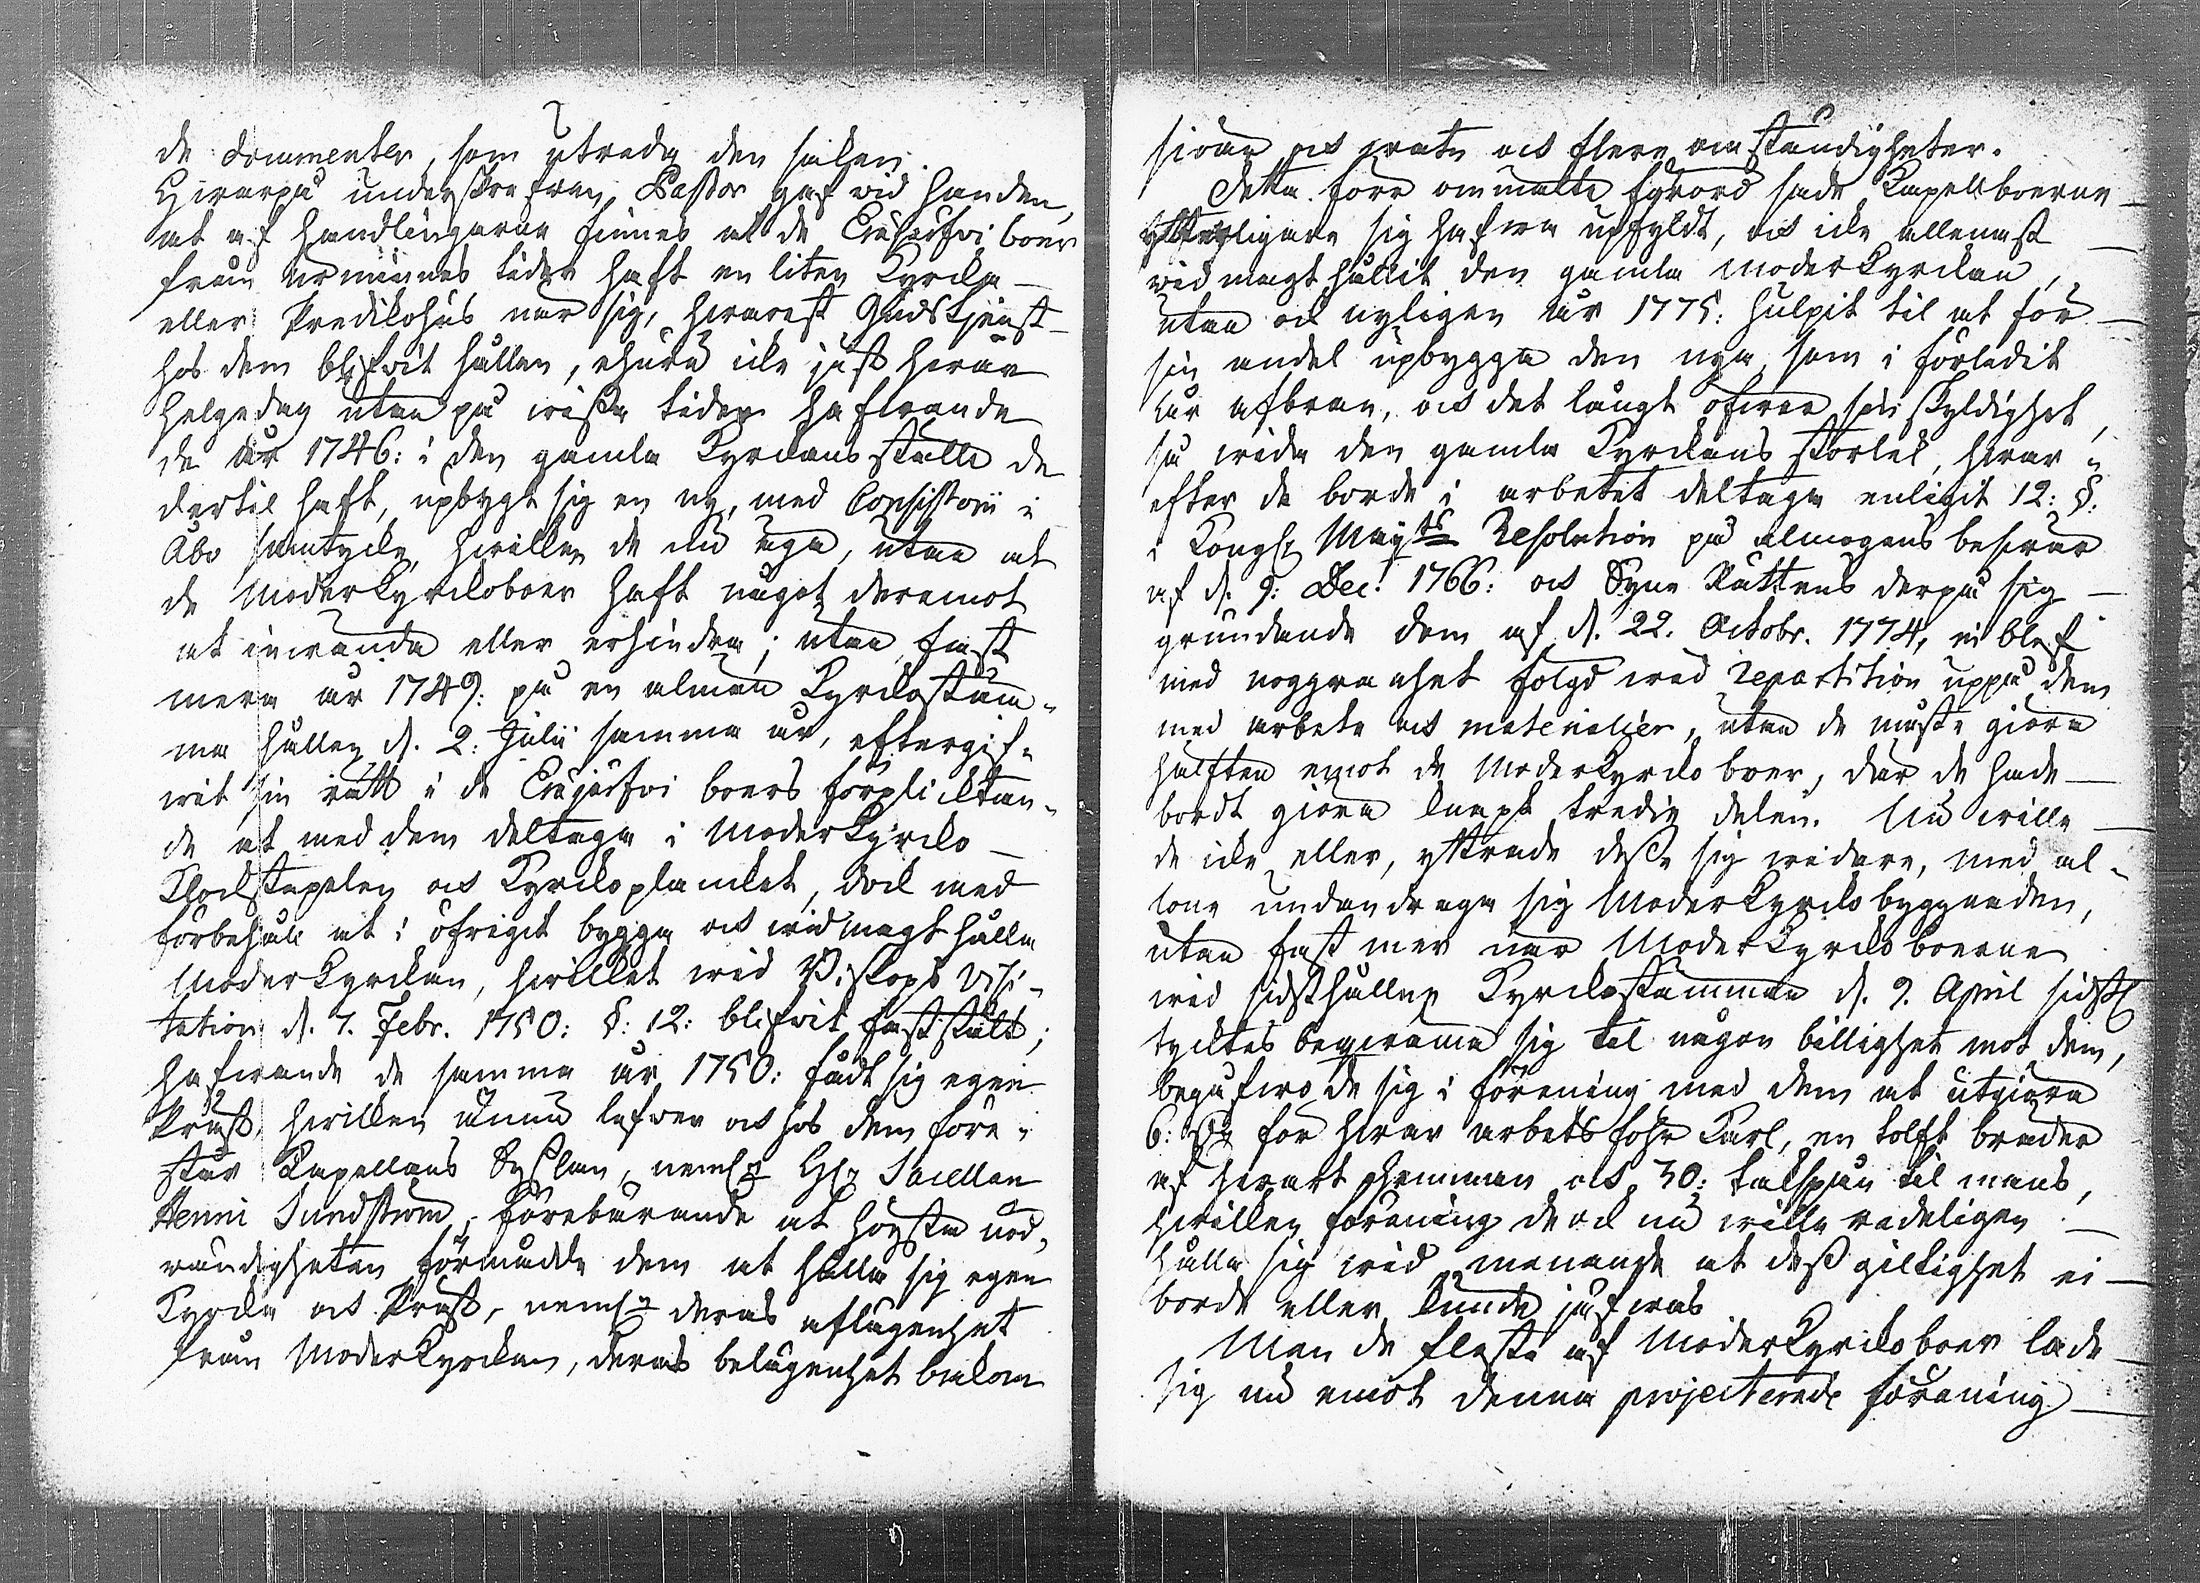 de documenter, som utreda den saken.
Hwarpå underskrefwen Pastor gaf wid handen,
at af handlingarna finnes at de Eujärfvi boer
från urminnes tider haft en liten Kyrcka
eller Predikohus när sig, hwarest Gudstjenst
hos dem blifvit hållen, ehuru icke just hwar
helgedag utan på wissa tider hafwande
de år 1746: i den gamla Kyrckans ställe de
dertil haft, upbygt sig en ny, med Consistorii i
Åbo samtycke, hwilken de nu äga, utan at
de Moderkyrckoboer haft något deremot
at inwända eller erhindra; utan fast
mera år 1749: på en alman Kyrckostäm-
ma hållen d. 2: Julii samma år, eftergif-
wit sin rätt i de Eujärfvi boers förplicktan-
de at med dem deltaga i Moderkyrcko
Klockstapelen och Kyrckoplancket, dock med
förbehåll at i öfrigit bygga och wid magt hålla
Moderkyrckan, hwilket wid Biskops Visi-
tation d. 7. Febr. 1750: §: 12: blifvit fastställt;
hafwande de samma år 1750: fådt sig egen
Präst, hwilken ännu lefwer och hos dem före-
står Kapellans Sysslan, neml. H. Sacellan
Henric Sundström, förebärande at högsta nöd-
wändigheten förmådde dem at hålla sig egen
Kyrcka och Präst, neml. deras aflägenhet
från Moderkyrckan, deras belägenhet bakom
sjöar och träsk och flere omständigheter.
Detta förr ommälte förord sade Kapellboerne
ytterligare sig hafwa upfyldt, och icke allenast
wid magt hållit den gamla Moderkyrckan,
utan ock nyligen år 1775: hulpit til at för
sin andel upbygga den nya, som i förledit
år afbran, och det långt öfwer sin skyldighet,
så wida den gamla Kyrckans storlek, hwar-
efter de borde i arbetet deltaga enligit 12: §.
i Kongl. Maj:ts Resolution på almogens beswär
af d. 9: Dec. 1766: och Syne Rättens derpå sig
grundande dom af d. 22. Octobr. 1774, ei blef
med noggranhet fölgd wid repartition uppå dem
med arbete och materialier, utan de måste giöra
hälften emot de Moderkyrcko boer, där de hade
bordt giöra knapt tredie delen. Nu wille
de icke eller, yttrade desse sig widare, med al-
one undandraga sig Moderkyrcko byggnaden,
utan fast mer när Moderkyrcko boerne
wid sidsthållne Kyrckostämman d. 9. April sidstl.
tycktes beqwäma sig til någon billighet mot dem,
begåfwo de sig i förening med dem at utgiöra
6: för hwar arbetsför Karl, en tolft bräder
af hwart Hemman och 30: takspån til mans,
hwilken förening de ock nu wille redeligen
hålla sig wid, menande at dess giltighet ei
borde eller kunde jäfwas
Men de fleste af Moderkyrcko boer lade
sig nu emot denna projecterade förening